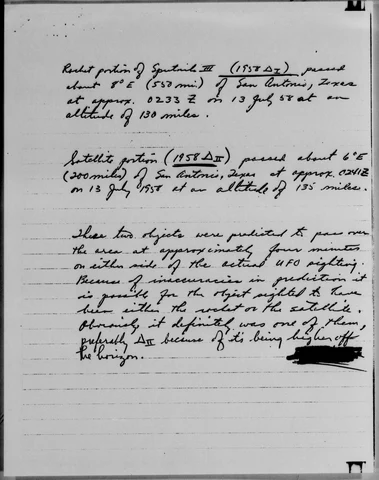 Rocket portion of Sputnik III (1958 Δ I) passed
about 8° E (550 mi) of San Antonio, Texas
at approx. 0233 Z on 13 July 58 at an
altitude of 130 miles.
Satellite portion (1958 Δ II) passed about 6° E
(200 miles) of San Antonio, Texas at approx. 0241Z
on 13 July 1958 at an altitude of 135 miles.
These two objects were predicted to pass over
the area at approximately four minutes
on either side of the actual UFO sighting.
Because of inaccuracies in prediction it
is possible for the object sighted to have
been either the rocket or the satellite.
Obviously it definitely was one of them,
preferably Δ II because of its being higher off
the horizon.